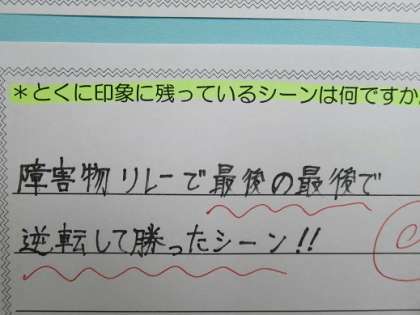 ＊とくに印象に残っているシーンは何ですか
障害物リレーで最後の最後で
逆転して勝ったシーン!!